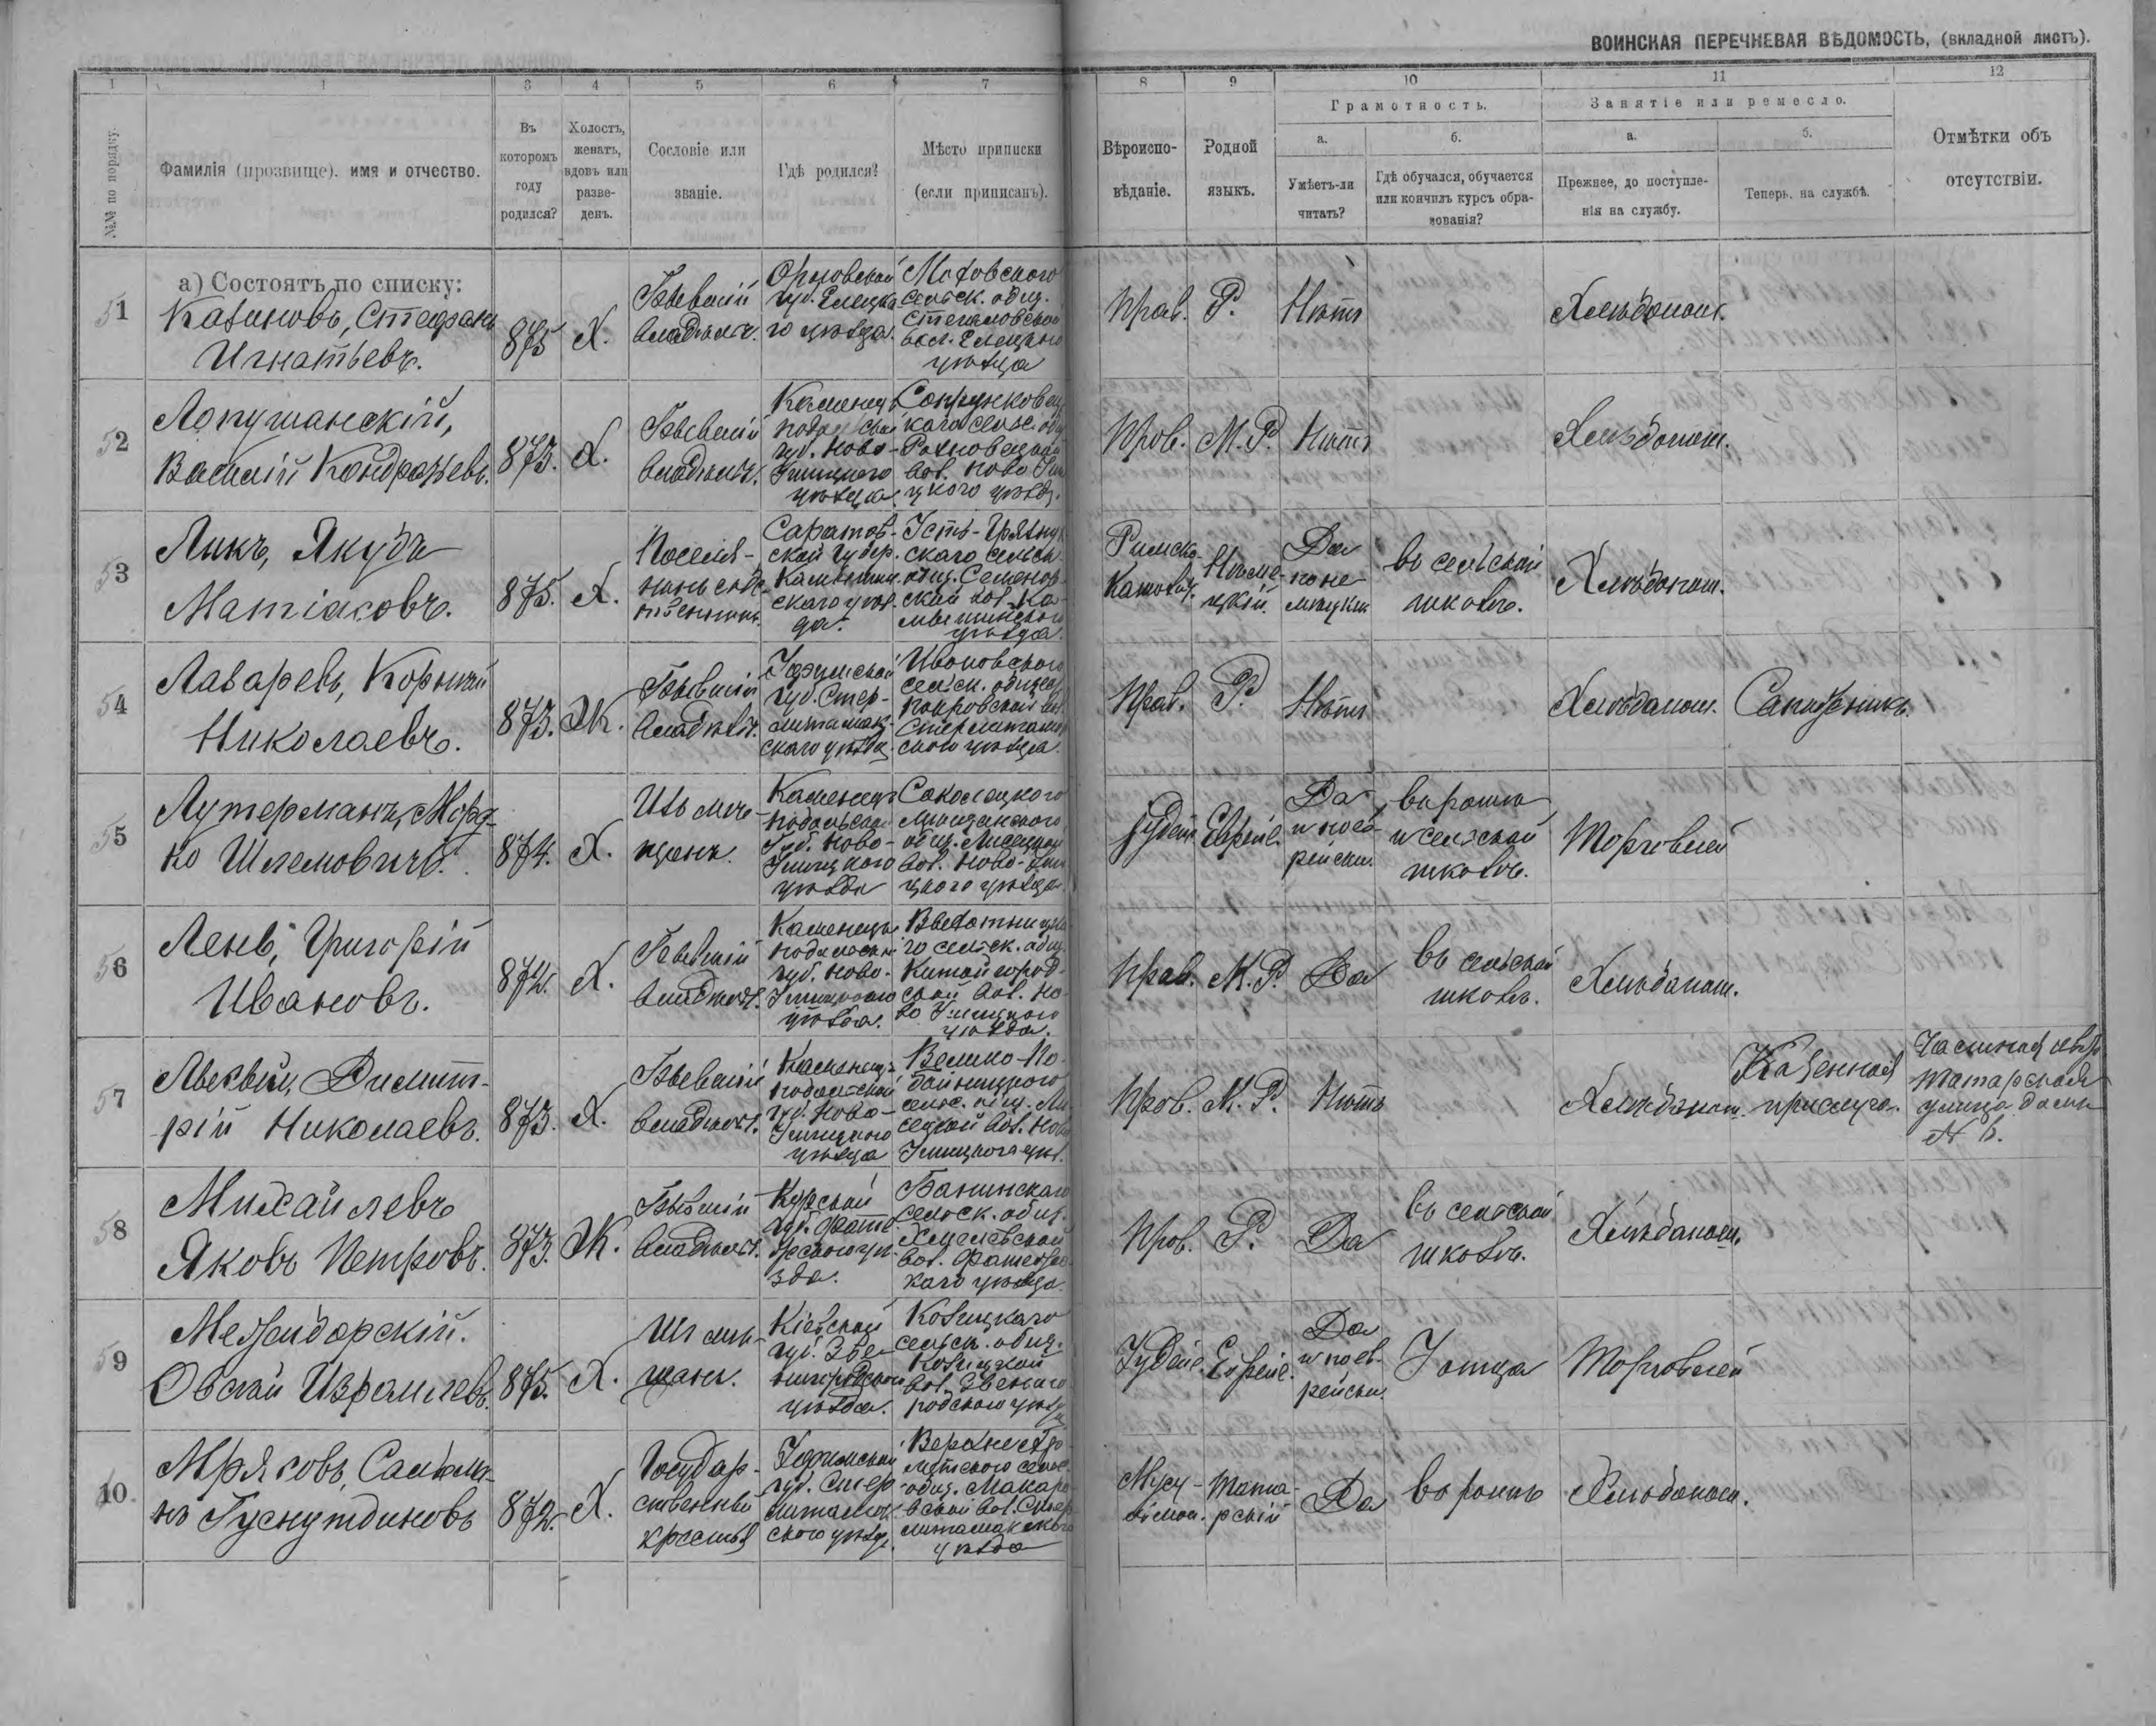 ВОИНСКАЯ ПЕРЕЧНЕВАЯ ВѢДОМОСТЬ, (вкладной листъ).
1 1 3 4 5 6 7 8 9 10 11 12
№№ по порядку.
Фамилія (прозвище). имя и отчество.
Въ которомъ году родился?
Холостъ, женатъ, вдовъ или разве-
денъ.
Сословіе или
званіе.
Гдѣ родился?
Мѣсто приписки
(если приписанъ).
Вѣроиспо-
вѣданіе.
Родной
языкъ.
Грамотность.
а.
Умѣетъ-ли
читать?
б.
Гдѣ обучался, обучается
или кончилъ курсъ обра-
зованія?
Занятіе или ремесло.
а.
Прежнее, до поступле-
нія на службу.
б.
Теперь, на службѣ.
Отмѣтки объ
отсутствіи.
а) Состоятъ по списку:
51
Стефанъ
Игнатьевъ.
875
Х.
Бывшій
владѣльч.
Орловской
губ. Елецка
го уѣзда.
сельск. общ.
вол. Елецкаго
уѣзда
Прав.
Р.
Нѣтъ
Хлѣбопаш.
52
Лопушанскій,
Василій Кондратьевъ.
873.
Х.
Бывшій
владѣльч.
Каменецъ
Подольской
губ. Ново-
Ушицкаго
уѣзда.
каго сельс. общ
вол. Ново Уши
цкаго уѣзд.
Прав.
М. Р.
Нѣтъ
Хлѣбопаш.
53
Ликъ, Якубъ
Матіасовъ.
875.
Х.
Поселя-
нинъ собс-
твенникъ.
Саратов-
ской губер.
Камышин
скаго уѣз-
да.
Усть-Грязну
скаго сельск
общ. Семенов-
ской вол. Ка-
мышинскаго
уѣзда.
Римско-
Католич.
Нѣме-
цкій.
Да
по не-
мѣцки
въ сельской
школѣ.
Хлѣбопаш.
54
Лазаревъ, Корнилій
Николаевъ.
873.
Ж.
Бывшій
владѣльч.
Уфимской
губ. Стер-
литамак-
скаго уѣзда.
Ивановскаго
сельск. общес
Покровской вол.
Стерлитамак
скаго уѣзда.
Прав.
Р.
Нѣтъ
Хлѣбопаш.
Сапожникъ.
55
Лутерманъ, Морд-
ко Шлемовичъ.
874.
Х.
Изъ мѣ-
щанъ.
Каменецъ
Подольской
Губ. Ново-
Ушицкаго
уѣзда
Соколецкаго
мѣщанскаго
общ.
вол. Ново-Уши
цкаго уѣзда.
Іудейс
Еврейс.
Да
и по ев-
рейски.
и сельской
школѣ.
Торговлей
56
Ленъ, Григорій
Ивановъ.
874.
Х.
Бывшій
владѣльч.
Каменецъ
Подольской
губ. Ново-
Ушицкаго
уѣзда.
го сельск. общ.
Китайгород-
ской вол. Но-
во Ушицкаго
уѣзда.
Прав.
М. Р.
Да
въ сельской
школѣ.
Хлѣбопаш.
57
Димит-
рій Николаевъ.
873.
Х.
Бывшій
владѣльч.
Каменецъ
Подольской
губ. Ново-
Ушицкаго
уѣзда
Ушицкаго уѣз.
Прав.
М. Р.
Нѣтъ
Хлѣбопаш.
Казенная
прислуга.
Татарская
улица домъ
58
Михайлевъ
Яковъ Петровъ.
873.
Ж.
Бывшій
владѣльч.
Курской
губ. Фате
жскаго уѣ-
зда.
Банинскаго
сельск. общ.
Хмелевской
вол. Фатежс
каго уѣзда.
Прав.
Р.
Да
въ сельской
школѣ.
Хлѣбопаш.
59
Овсѣй Израилевъ.
875.
Х.
Изъ мѣ-
щанъ.
Кіевской
губ. Зве-
нигородской
уѣзда.
сельск. общ.
вол. Звениго
родскаго уѣзда
Іудейс.
Еврейс.
Да
и по ев-
рейски.
У отца
Торговлей
10
Мрясовъ,
872.
Х.
Государ-
ственный
крестья
Уфимской
губ. Стер
литамак
скаго уѣзд.
общ. Макаро
вской вол. Стер
литамакскаго
уѣзда
Мусу-
льман.
Тата-
рскій
Да
Хлѣбопаш.